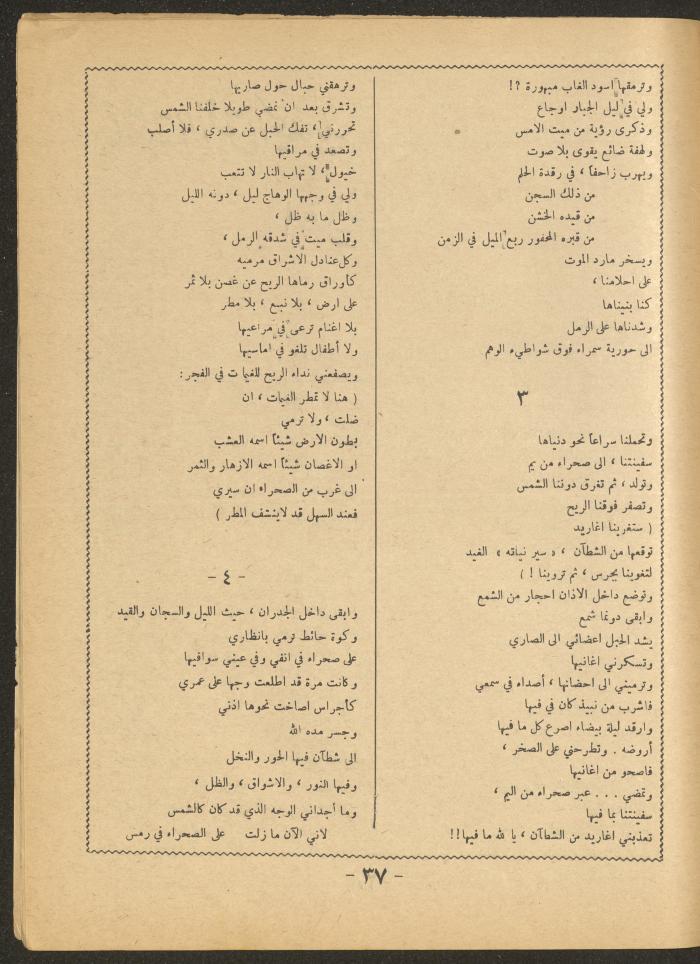 وترمقها اسود الغاب مبهورة ?!
ولي في ليل الجبار اوجاع
وذكرى رؤية من ميت الامس
ولهفة ضائع يقوى بلا صوت
ويهرب زاحفاً ، في رقدة الحلم
من ذلك السجن
من قيده الخشن
من قبره المحفور ربع الميل في الزمن
ويسخر مارد الموت
على احلامنا ،
كنا بنيناها
وشدناها على الرمل
الى حورية سمراء فوق شواطيء الوهم
٣
وتحملنا سراعاً نحو دنياها
سفينتنا ، الى صحراء من يم
وتولد ، ثم تغرق دوننا الشمس
وتصفر فوقنا الريح
( ستغرينا اغاريد
توقعها من الشطآن ، « سير نياته » الغيد
لتغوينا بجرس ، ثم تروينا ! )
وتوضع داخل الاذان احجار من الشمع
وابقى دونما شمع
يشد الحبل اعضائي الى الصاري
وتسكرني اغانيها
وترميني الى احضانها ، أصداء في سمعي
فاشرب من نبيذ كان في فيها
وارقد ليلة بيضاء اصرع كل ما فيها
أروضه . وتطرحني على الصخر ،
فاصحو من اغانيها
وتمضي . . . عبر صحراء من اليم ،
سفينتنا بما فيها
تعذبني اغاريد من الشطآن ، يا لله ما فيها !!
وترهقني حبال حول صاريها
وتشرق بعد ان نمضي طويلا خلفنا الشمس
تحررني ، تفك الحبل عن صدري ، فلا أصلب
وتصعد في مراقيها
خيول ، لا تهاب النار لا تتعب
ولي في وجهها الوهاج ليل ، دونه الليل
وظل ما به ظل ،
وقلب ميت في شدقه الرمل ،
وكل عنادل الاشراق مرميه
كأوراق رماها الريح عن غصن بلا ثمر
على ارض ، بلا نبع ، بلا مطر
بلا اغنام ترعى في مراعيها
ولا أطفال تلغو في اماسيها
ويصفعني نداء الريح للغيمات في الفجر :
( هنا لا تمطر الغيمات ، ان
ضلت ، ولا ترمي
بطون الارض شيئاً اسمه العشب
او الاغصان شيئاً اسمه الازهار والثمر
الى غرب من الصحراء ان سيري
فعند السهل قد لاينشف المطر )
- ٤ -
وابقى داخل الجدران ، حيث الليل والسجان والقيد
وكوة حائط ترمي بانظاري
على صحراء في انفي وفي عيني سوافيها
وكانت مرة قد اطلعت وجها على عمري
كأجراس اصاخت نحوها اذني
وجسر مده الله
الى شطآن فيها الحور والنخل
وفيها النور ، والاشواق ، والظل ،
وما أجداني الوجه الذي قد كان كالشمس
لاني الآن ما زلت على الصحراء في رمس
- ٣٧ -